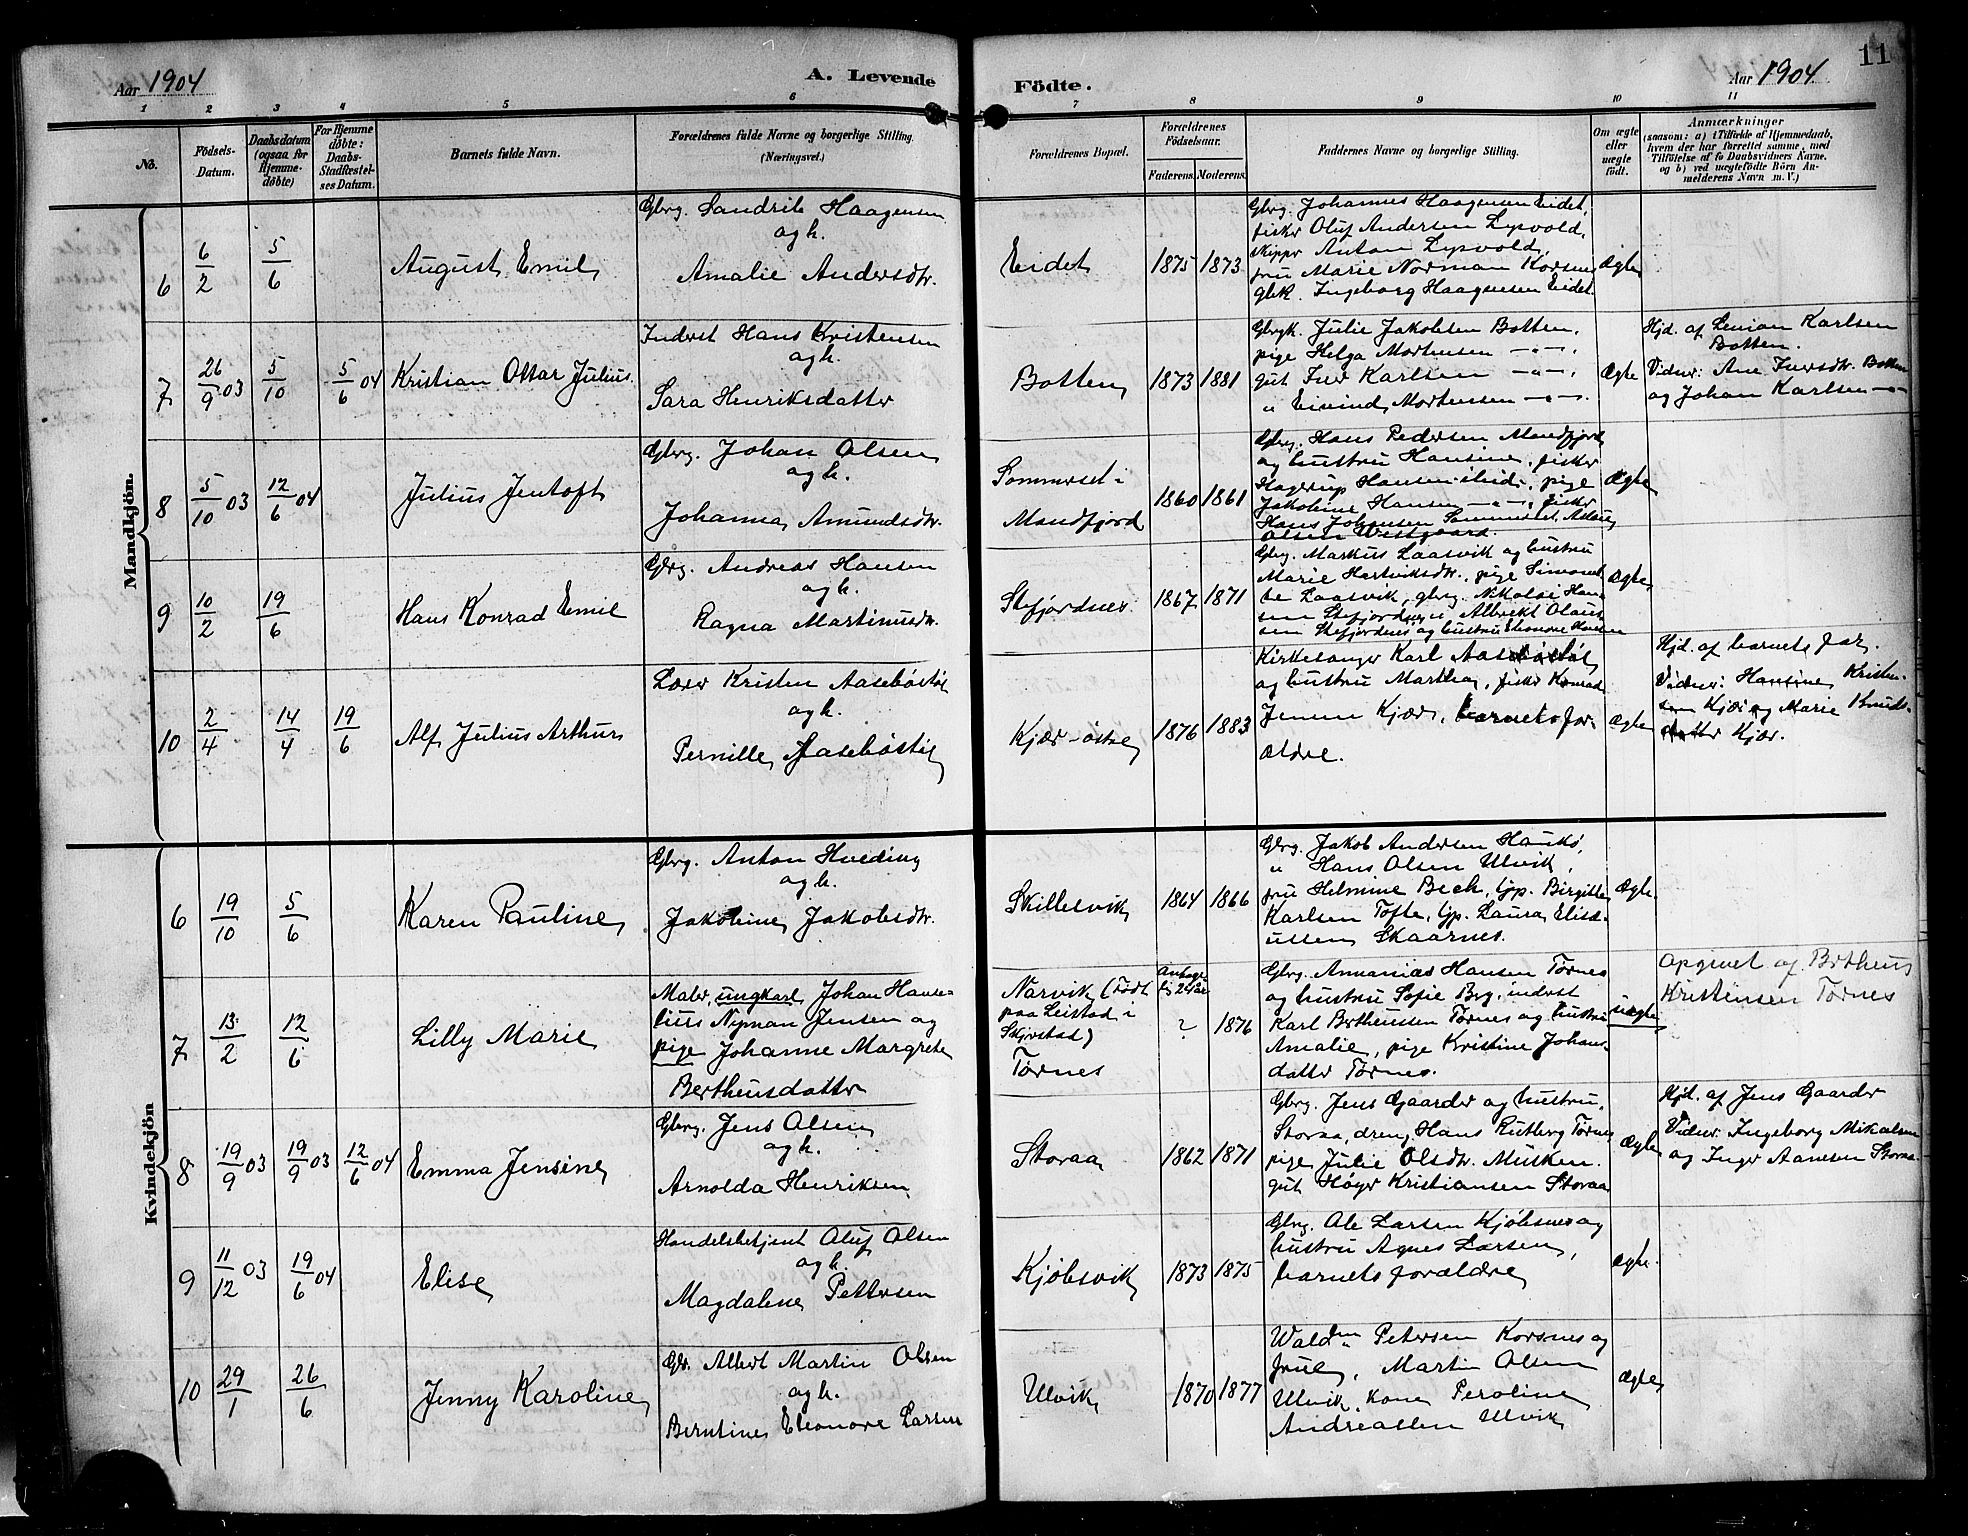 Aar 1904
A. Levende
Födte.
Aar 1904
11
1 2 3 4 5 6 7 8 9 10 11
No.
Födsels-
Datum.
Daabsdatum
(ogsaa for
Hjemme-
døbte)
For Hjemme
døbte:
Daabs-
Stadfæstel-
ses Datum.
Barnets fulde Navn.
Forældrenes fulde Navne og borgerlige Stilling.
(Næringsvei.)
Forældrenes Bopæl.
Forældrenes
Födselsaar.
Faderens. Moderens.
Faddernes Navne og borgerlige Stilling.
Om ægte
eller
uægte
født.
Anmærkninger
(saasom: a) i Tilfælde af Hjemmedaab,
hvem der har forrettet samme, med
Tilföielse af to Daabsvidners Navne,
og b) ved uægtefödte Börn An-
melderens Navn m. V.)
Mandkjön.
6
6/2
5/6
August Emil
Gbrg. Sandrik Haagensen
og h.
Amalie Andersdtr.
Eidet
1875 1873
Gbrg. Johannes Haagensen Eidet,
fisker Oluf Andersen Lysvold,
skipper Anton Lysvold,
fru Marie Norman Korsnes
gbk. Ingeborg Haagensen Eidet.
Ægte
7
26/9 03
5/10
5/6 04
Kristian Ottar Julius.
Inderst Hans Kristensen
og h.
Sara Henriksdatter
Botten
1873 1881
Gbrgk. Julie Jakobsen Botten,
pige Helga Mortensen — " — ,
gut Iver Karlsen — " — ,
" Eivind Mortensen — " — .
Ægte
Hjd. af Lenian Karlsen
Botten.
Vidner: Ane Iversdtr. Botten
og Johan Karlsen — " —
8
5/10 03
12/6 04
Julius Jentoft
Gbrg. Johan Olsen
og h.
Johanna Amundsdtr.
Sommerset i
Mandfjord
1860 1861
Gbrg. Hans Pedersen Mandfjord
og hustru Hansine, fisker
Hagerup Hansen ibid., pige
Jakobine Hansen — " — , fisker
Hans Johansen Sommerset,
Olsen Westgaard.
Ægte
9
10/2
19/6
Hans Konrad Emil
Gbrg. Andreas Hansen
og h.
Ragna Martinusdtr.
Stefjordnes.
1867 1871
Gbrg. Markus Laasvik og hustru
Marie Hartviksdtr., pige Simonet-
te Laasvik, gbrg. Nikolai Han-
sen Stefjordnes, Albrekt Olaus-
sen Stefjordnes og hustru Eleonore Hansen
Ægte
10
2/4
14/4
19/6
Alf Julius Arthur
Lærer Kristen Aasebøstøl
og h.
Pernille Aasebøstøl
Kjær østre
1876 1883
Kirkesanger Karl Aasebøstøl
og hustru Martha, fisker Konrad
Jensen Kjær, barnets for-
ældre.
Ægte
Hjd. af barnets far.
Vidner: Hansine Kristen-
sen Kjær og Marie Knuds-
datter Kjær.
Kvindekjön
6
19/10
5/6
Karen Pauline
Gbrg. Anton Hveding
og h.
Jakobine Jakobsdtr.
Skillesvik
1864 1866
Gbrg. Jakob Andersen Haukø,
" Hans Olsen Ulvik,
fru Helmine Bech, tjp. Birgitte
Karlsen Tofte, tjp. Laura Elise-
ussen Skaarnes.
Ægte.
7
13/2
12/6
Lilly Marie
Maler, ungkarl Johan Hanse-
tius Nyman Jensen og
pige Johanne Margrete
Bertheusdatter
Narvik (Født
paa Leistad i
Skjerstad)
Tørnes
antage-
lig 24 år
? 1876
Gbrg. Annanias Hansen Tørnes
og hustru Sofie Brg, inderst
Karl Bertheussen Tørnes og hustru
Amalie, pige Kristine Johans-
datter Tørnes.
uægte
Opgivet af Bertheus
Kristensen Tørnes
8
19/9 03
19/9 03
12/6 04
Emma Jensine
Gbrg. Jens Olsen
og h.
Arnolda Henriksen
Storaa
1862 1871
Gbrg. Jens Gaarder og hustru,
Storaa, dreng Hans Rutberg Tørnes
pige Julie Olsdtr. Musken.
gut Høyer Kristiansen Storaa
Ægte
Hjd. af Jens Gaarder
Vidner: Ingeborg Mikalsen
og Inger Aanesen Storaa.
9
11/12 03
19/6 04
Elise
Handelsbetjent Oluf Olsen
og h.
Magdalene Pettersen
Kjøbsvik
1873 1875
Gbrg. Ole Larsen Kjøbsnes og
hustru Agnes Larsen,
barnets forældre
Ægte.
10
29/1
26/6
Jenny Karoline
Gbr. Albert Martin Olsen
og h.
Berntine Eleonore Larsen
Ulvik
1870 1877
Petersen Korsnes og
frue, Martin Olsen
Ulvik, kone Peroline
Andreassen Ulvik
Ægte